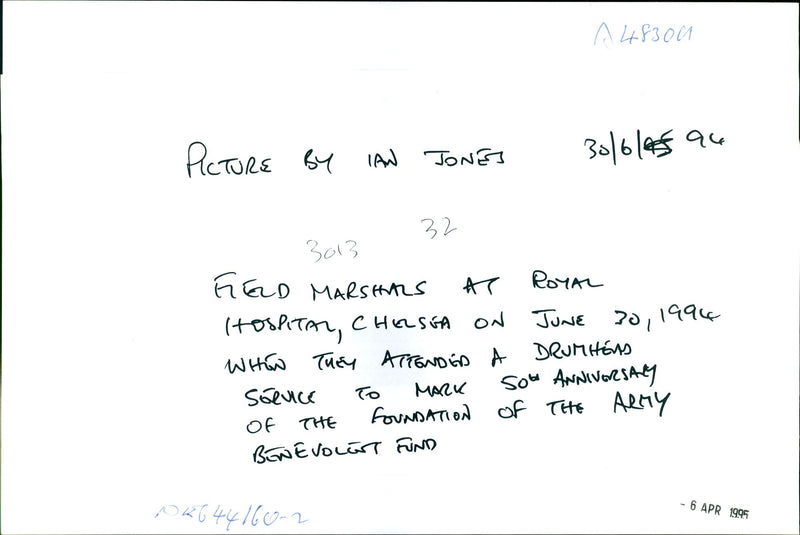 A48301
PICTURE BY IAN JONES 30/6/95 94
3013 32
FIELD MARSHALS AT ROYAL
HOSPITAL, CHELSEA ON JUNE 30, 1994
WHEN THEY ATTENDED A DRUMHEAD
SERVICE TO MARK 50th ANNIVERSARY
OF THE FOUNDATION OF THE ARMY
BENEVOLENT FUND
- 6 APR 1995